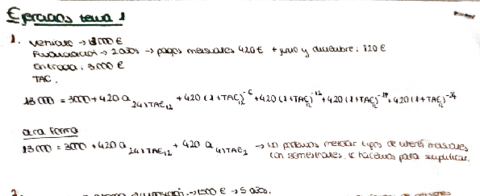 Ejercicios tema 1
1. Vehículo → 13000 €
Financiación → 2 años → pagos mensuales 420 € + junio y diciembre:
Entrada: 3000 €
TAC.
13000 = 3000 + 420 a 24 TAC12 + 420 (1+TAC12)^-6 + 420 (1+TAC12)^-12 + 420 (1+TAC12)^-18 + 420 (1+TAC12)^-24
otra forma
13000 = 3000 + 420 a 24 TAC12 + 420 a 4 TAC2 → no podemos mezclar tipos de interés mensuales
con semestrales, lo hacemos para simplificar.
2. → 1500 € → 5 años.